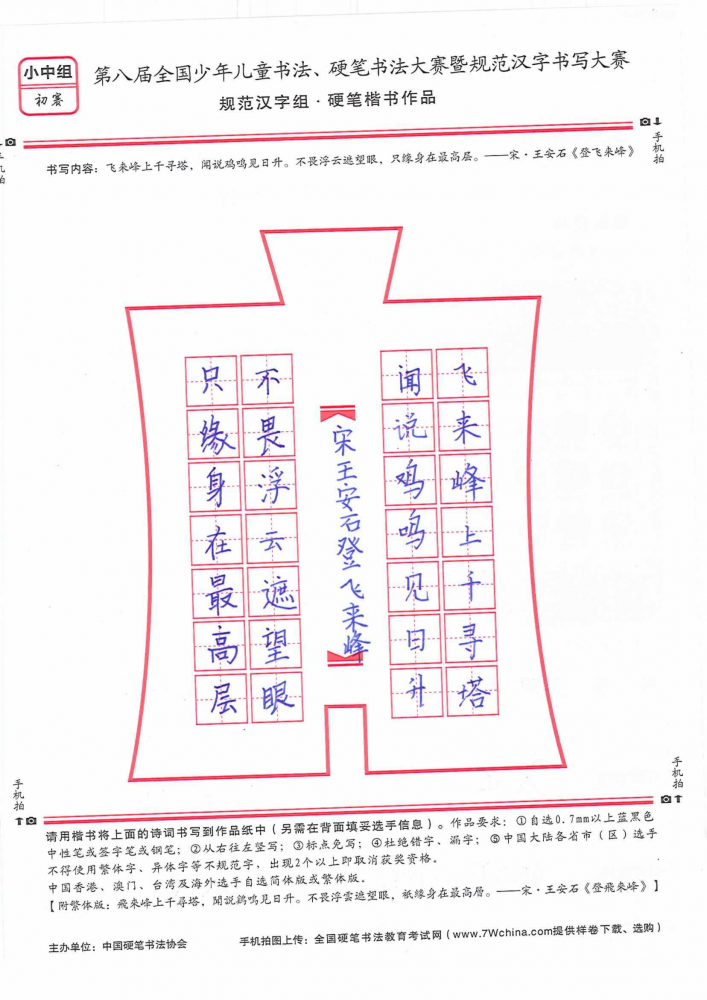 小中组
初赛
第八届全国少年儿童书法、硬笔书法大赛暨规范汉字书写大赛
规范汉字组·硬笔楷书作品
手机拍
手机拍
书写内容：飞来峰上千寻塔，闻说鸡鸣见日升。不畏浮云遮望眼，只缘身在最高层。——宋·王安石《登飞来峰》
飞来峰上千寻塔
闻说鸡鸣见日升
宋王安石登飞来峰
不畏浮云遮望眼
只缘身在最高层
手机拍
手机拍
请用楷书将上面的诗词书写到作品纸中（另需在背面填妥选手信息）。作品要求：①自选0.7mm以上蓝黑色
中性笔或签字笔或钢笔；②从右往左竖写；③标点免写；④杜绝错字、漏字；⑤中国大陆各省市（区）选手
不得使用繁体字、异体字等不规范字，出现2个以上即取消获奖资格。
中国香港、澳门、台湾及海外选手自选简体版或繁体版。
【附繁体版：飛來峰上千尋塔，聞說鷄鳴見日升。不畏浮雲遮望眼，衹緣身在最高層。——宋·王安石《登飛來峰》】
主办单位：中国硬笔书法协会 手机拍图上传：全国硬笔书法教育考试网（www.7Wchina.com提供样卷下载、选购）